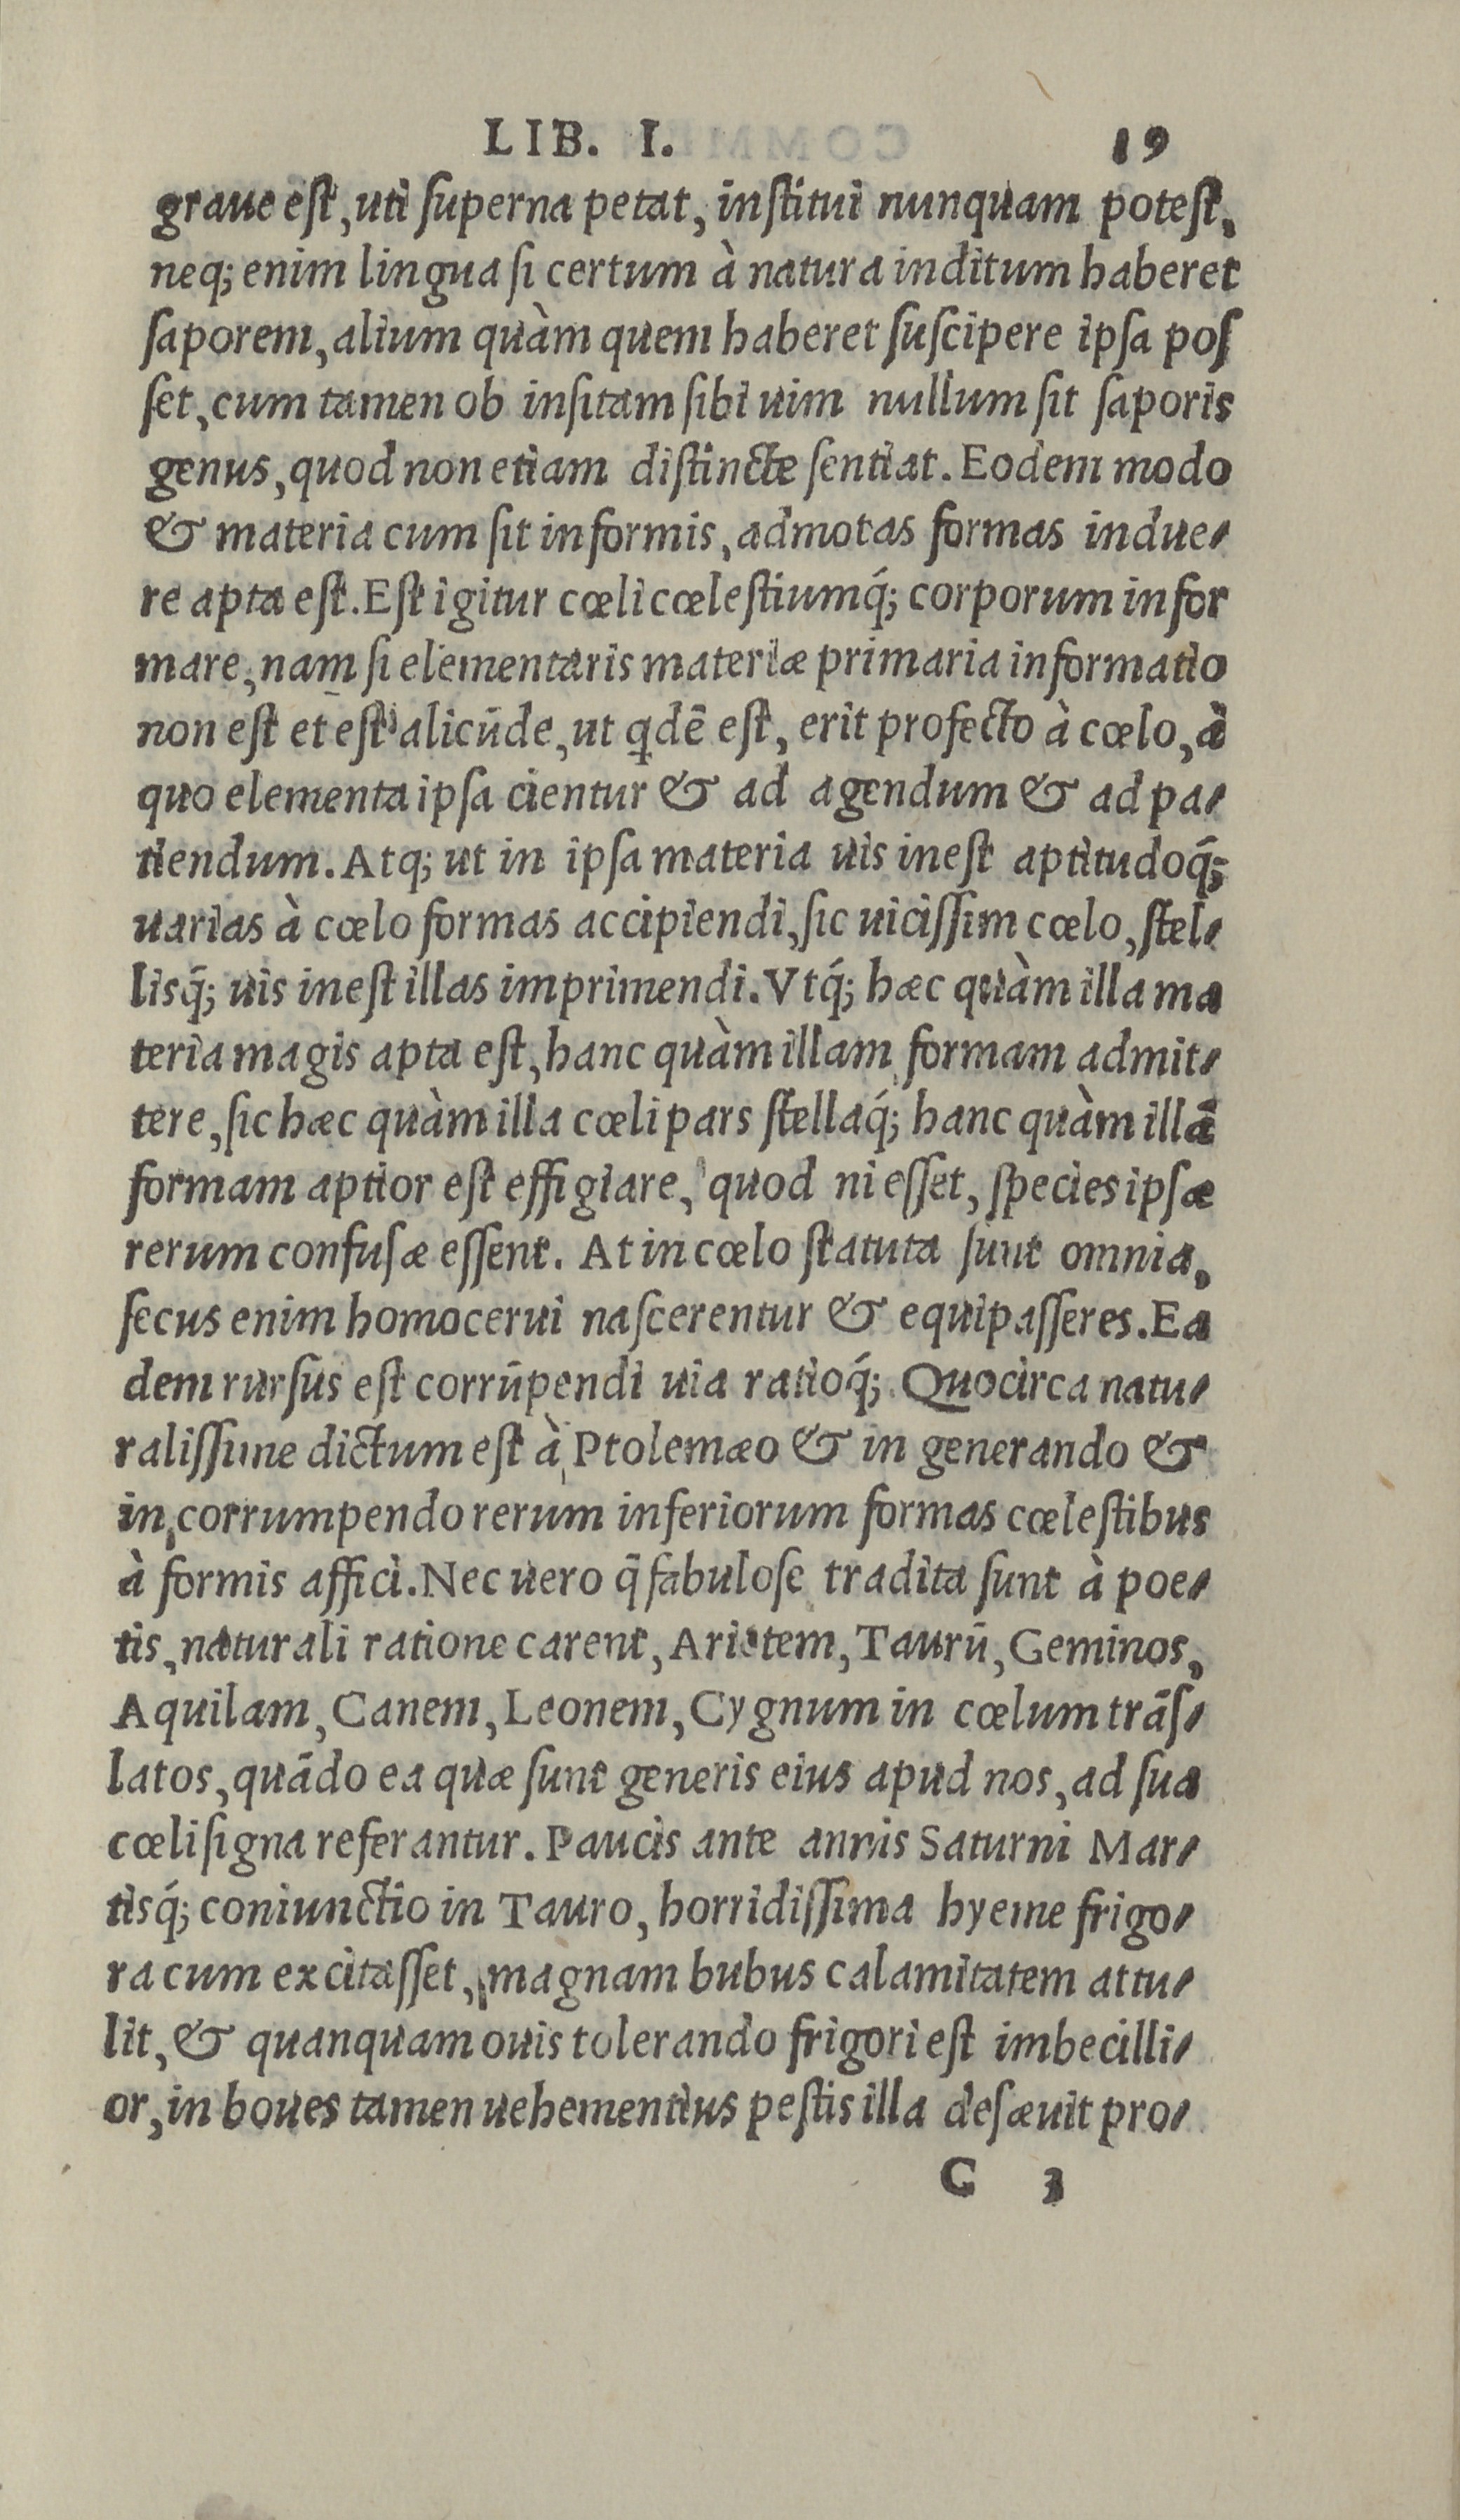 LIB. I. 19
graue est, uti superna petat, institui nunquam potest,
neq; enim lingua si certum à natura inditum haberet
saporem, alium quàm quem haberet suscipere ipsa pos
set, cum tamen ob insitam sibi uim nullum sit saporis
genus, quod non etiam distincte sentiat. Eodem modo
& materia cum sit informis, admotas formas indue-
re apta est. Est igitur cœli cœlestiumq́; corporum infor
mare, nam si elementaris materiæ primaria informatio
non est et est alicūde, ut qdē est, erit profecto à cœlo, à
quo elementa ipsa cientur & ad agendum & ad pa-
tiendum. Atq; ut in ipsa materia uis inest aptitudoq́;
uarias à cœlo formas accipiendi, sic uicissim cœlo, stel-
lisq́; uis inest illas imprimendi. Vtq́; hæc quàm illa ma
teria magis apta est, hanc quàm illam formam admit-
tere, sic hæc quàm illa cœli pars stellaq́; hanc quàm illā
formam aptior est effigiare, quod ni esset, species ipsæ
rerum confusæ essent. At in cœlo statuta sunt omnia,
secus enim homocerui nascerentur & equipasseres. Ea
dem rursus est corrūpendi uia ratioq́; Quocirca natu-
ralissime dictum est à Ptolemæo & in generando &
in corrumpendo rerum inferiorum formas cœlestibus
à formis affici. Nec uero q̄ fabulose tradita sunt à poe-
tis, naturali ratione carent, Arietem, Taurū, Geminos,
Aquilam, Canem, Leonem, Cygnum in cœlum trās-
latos, quādo ea quæ sunt generis eius apud nos, ad sua
cœli signa referantur. Paucis ante annis Saturni Mar-
tisq́; coniunctio in Tauro, horridissima hyeme frigo-
ra cum excitasset, magnam bubus calamitatem attu-
lit, & quanquam ouis tolerando frigori est imbecilli-
or, in boues tamen uehementius pestis illa desæuit pro-
C 3